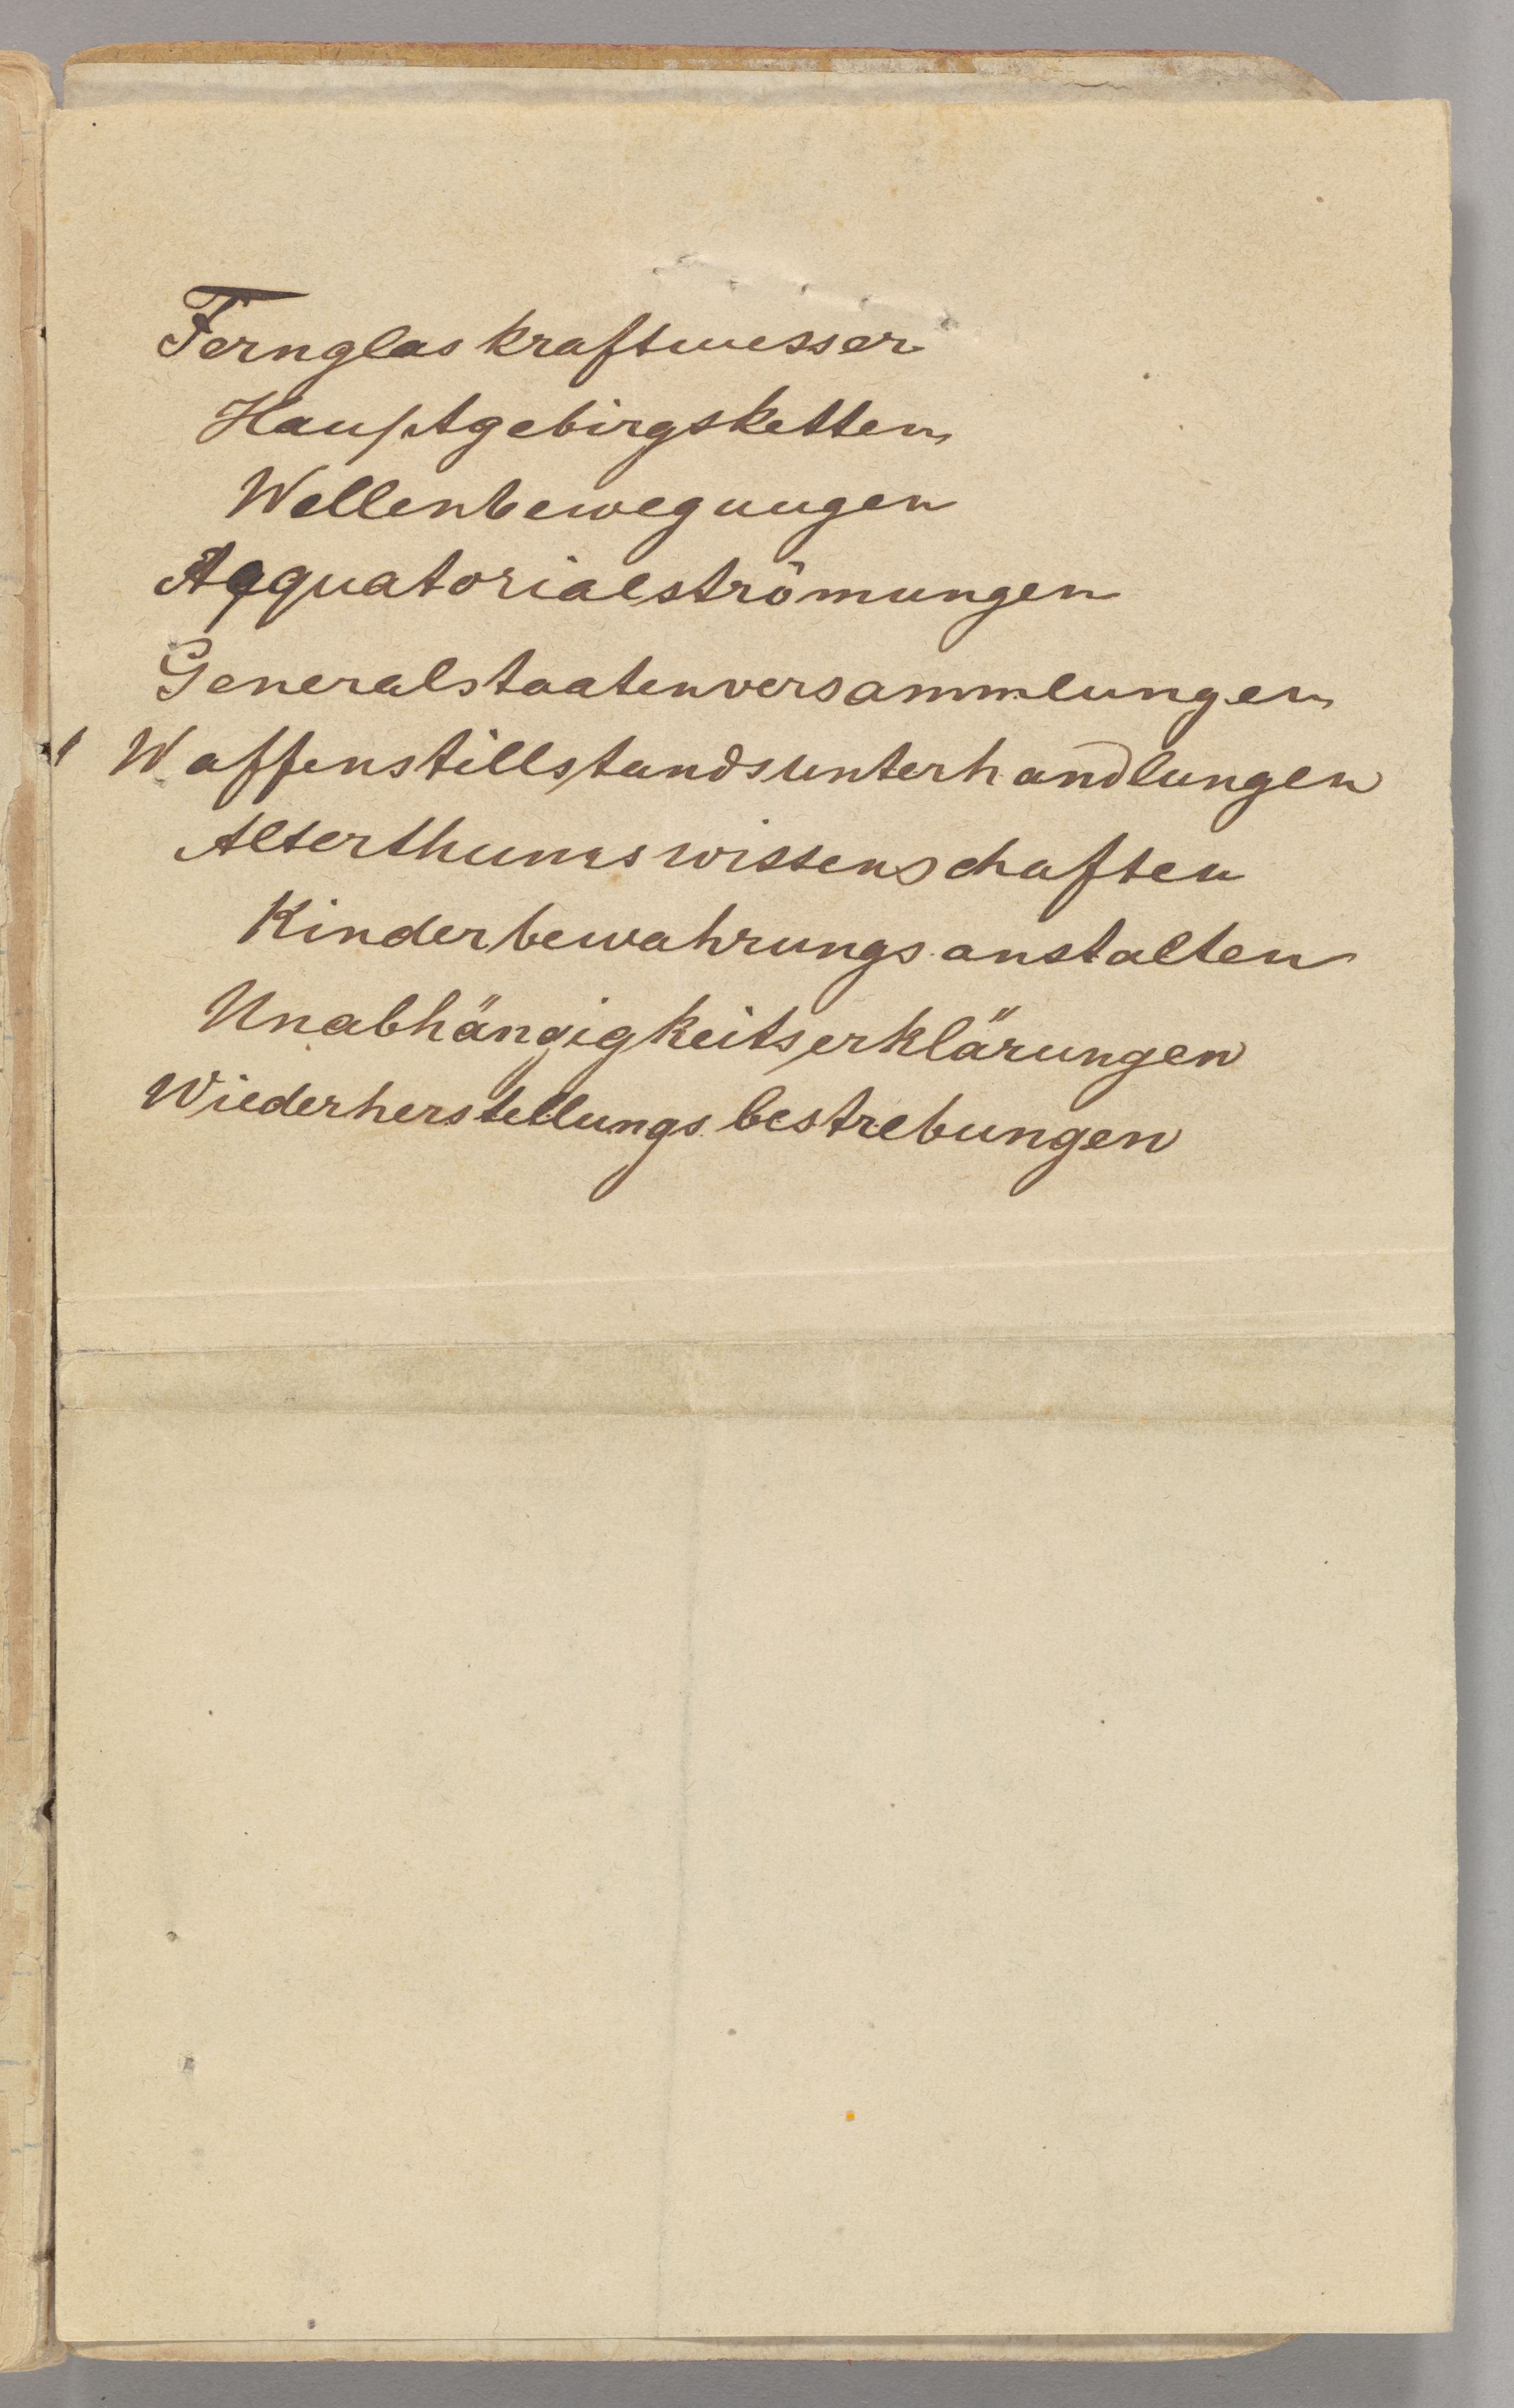 Fernglaskraftmesser
Hauptgebirgsketten
Wellenbewegungen
Aequatorialströmungen
Generalstaatenversammlungen
Waffenstillstandsunterhandlungen
Alterthumswissenschaften
Kinderbewahrungsanstalten
Unabhängigkeitserklärungen
Wiederherstellungsbestrebungen